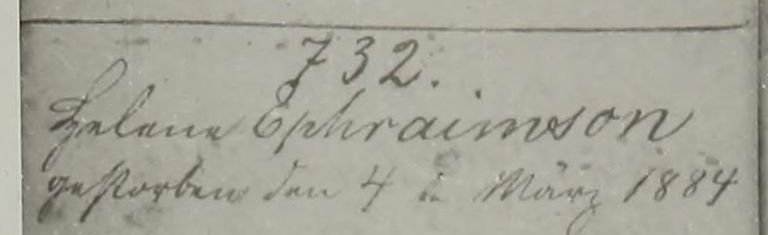 732.
Helene Ephraimson
gestorben den 4 März 1884